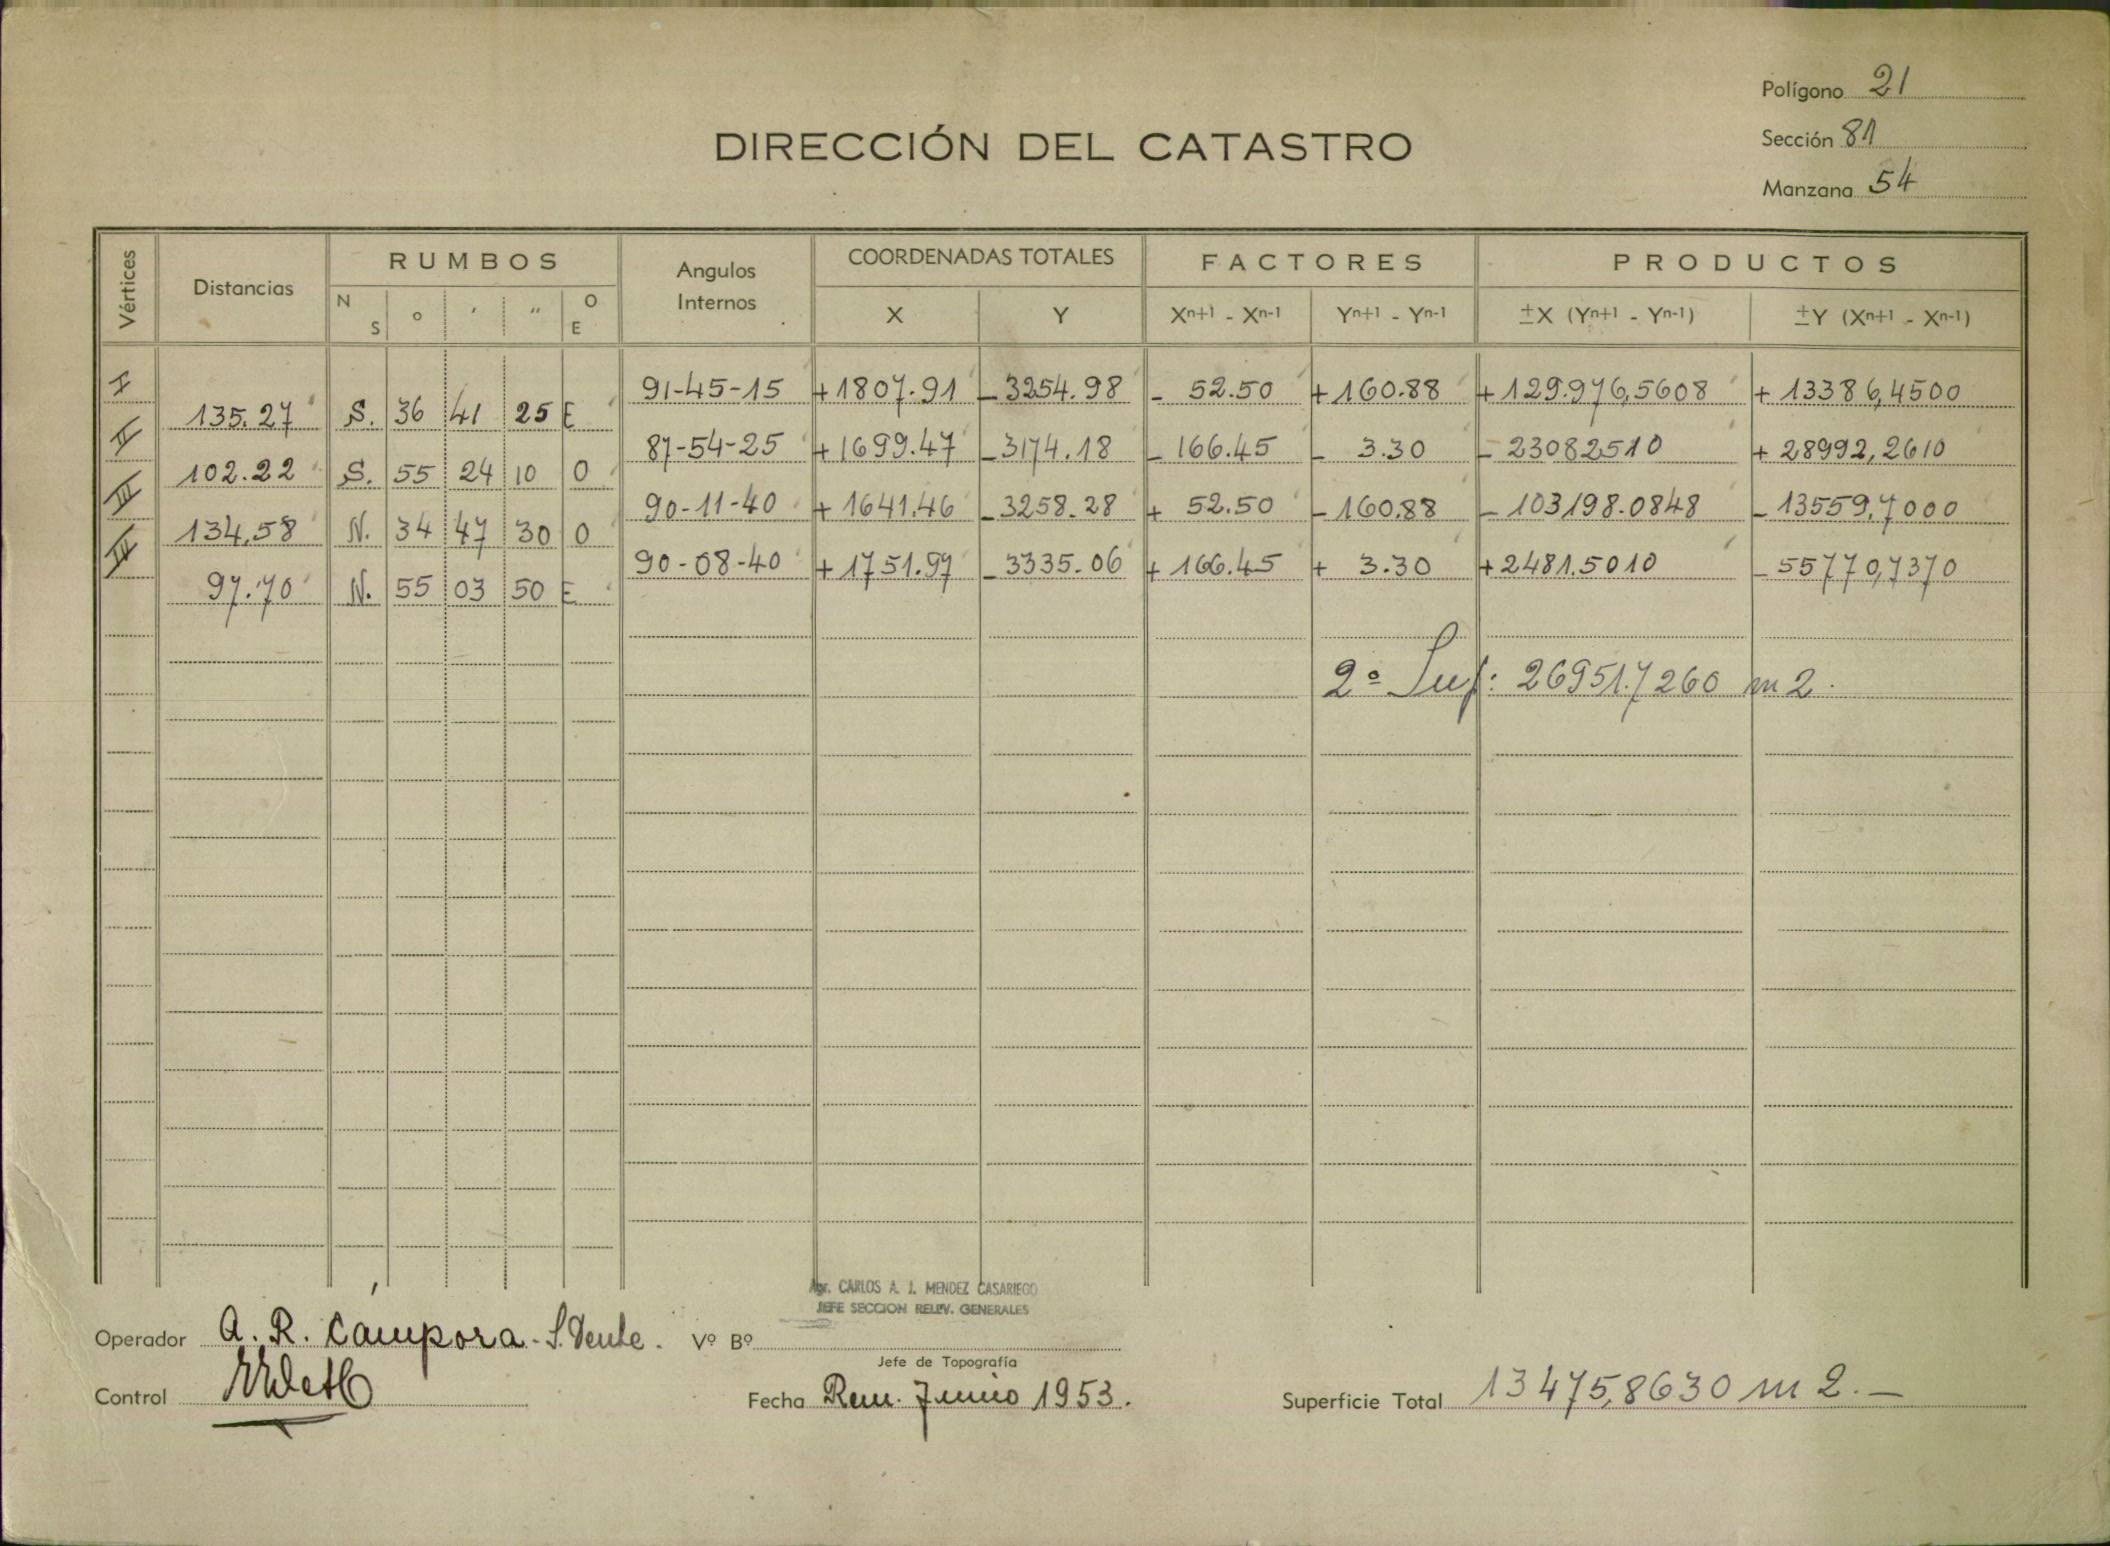 Polígono 21
DIRECCIÓN DEL CATASTRO
Sección 81
Manzana 54
Vértices Distancias RUMBOS Angulos Internos COORDENADAS TOTALES FACTORES PRODUCTOS
N S ° ' " O E X Y Xn+1 - Xn-1 Yn+1 - Yn-1 ±X (Yn+1 - Yn-1) ±Y (Xn+1 - Xn-1)
I 91-45-15 +1807.91 -3254.98 - 52.50 +160.88 +129.976,5608 + 13386,4500
135.27 S. 36 41 25 E
II 87-54-25 +1699.47 -3174.18 - 166.45 - 3.30 - 2308.2510 + 28992,2610
102.22 S. 55 24 10 O
III 90-11-40 + 1641.46 -3258.28 + 52.50 -160.88 - 103198.0848 - 13559,7000
134.58 N. 34 47 30 O
IV 90-08-40 +1751.97 -3335.06 + 166.45 + 3.30 +2481.5010 -55770,7370
97.70 N. 55 03 50 E
2º Sup: 26951.7260 m2.
Agr. CARLOS A. J. MENDEZ CASARIEGO
JEFE SECCION RELEV. GENERALES
Operador A. R. Cámpora - Vº Bº
Jefe de Topografía
Control Fecha Rem. Junio 1953. Superficie Total 13475,8630 m2.—